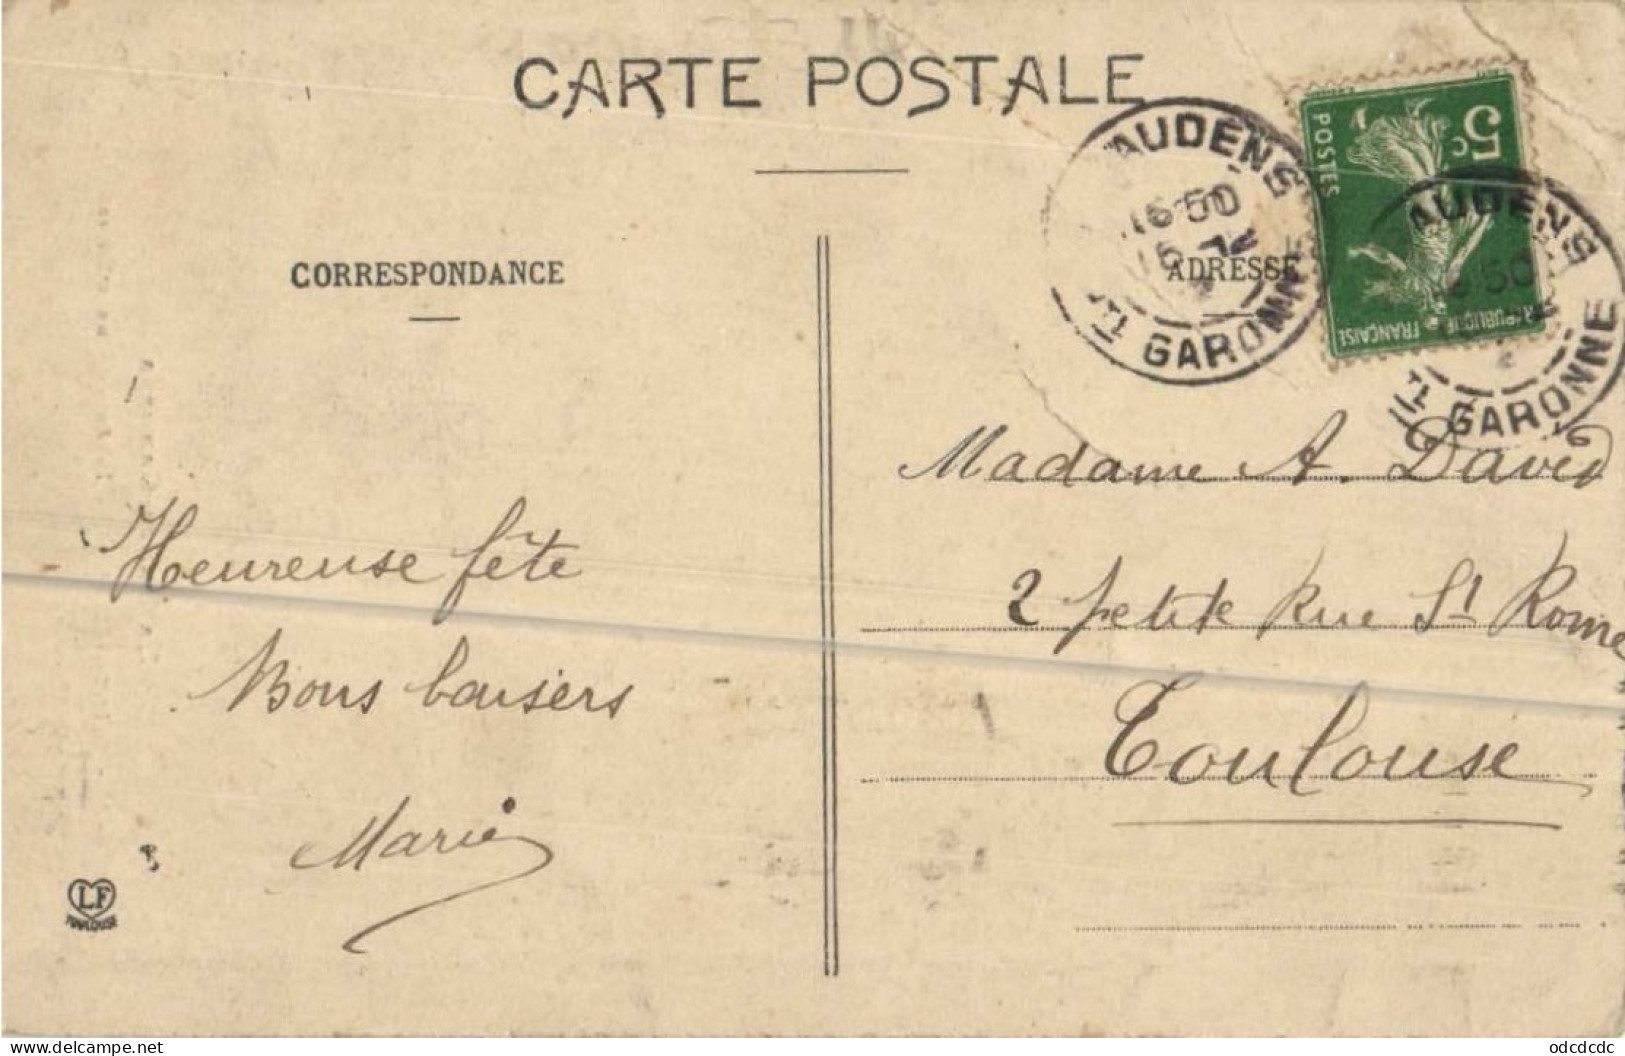 CARTE POSTALE
CORRESPONDANCE
Heureuse fête
Bons baisers
Marie
LF
TOULOUSE
AUDENS
16 50
Hte GARONNE
5c
POSTES
REPUBLIQUE FRANÇAISE
AUDENS
50
Hte GARONNE
ADRESSE
Madame A. David
2 petite Rue St Rome
Toulouse
delcampe.net
odcdcdc